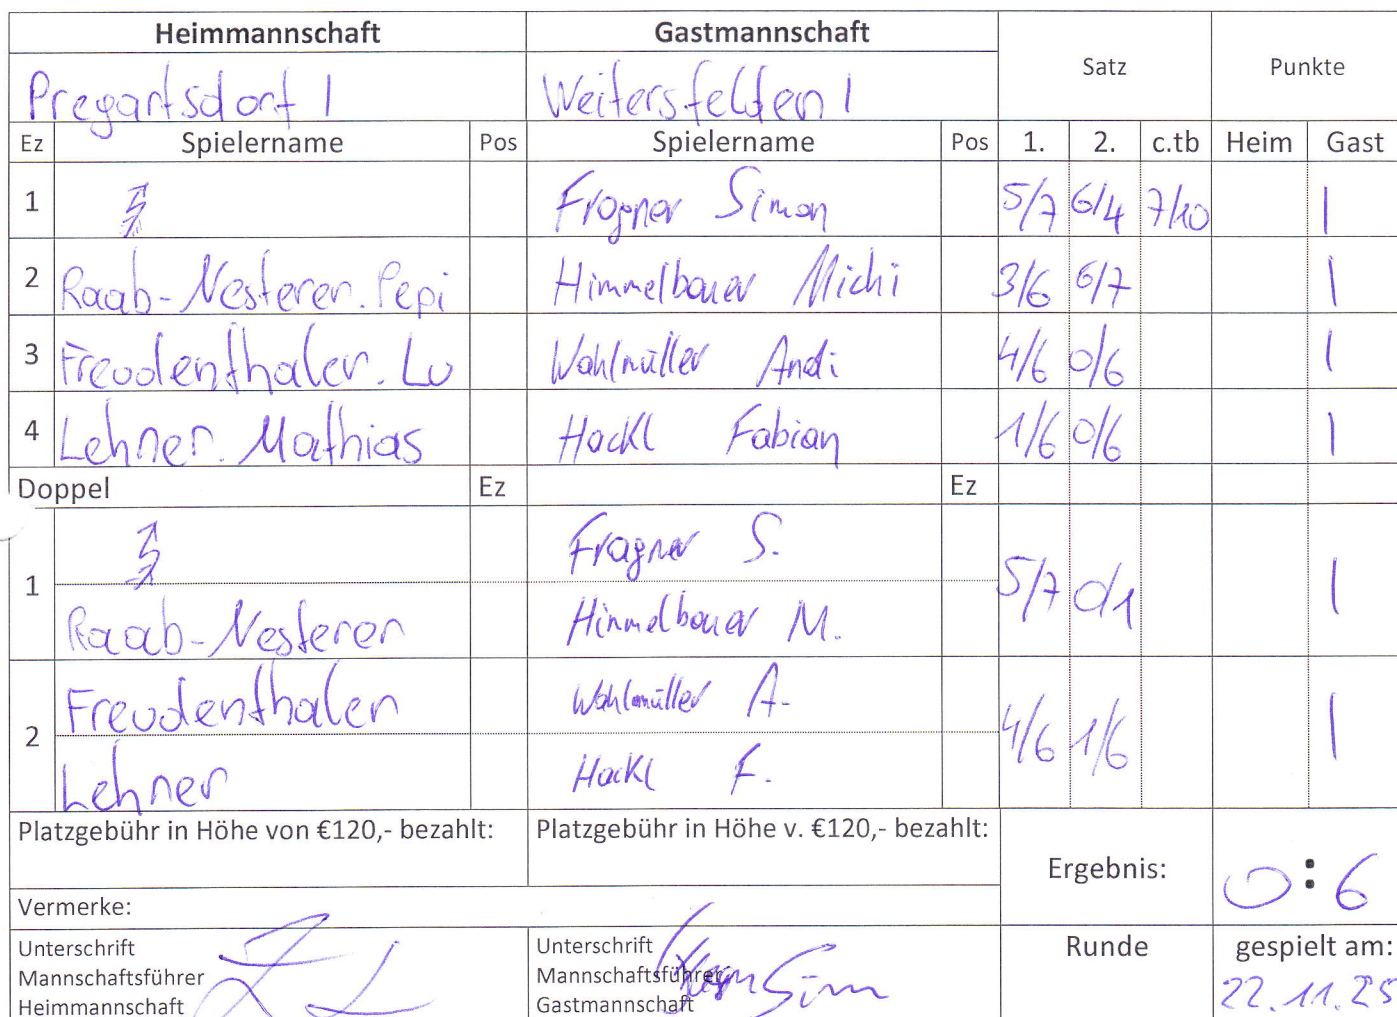 Heimmannschaft Gastmannschaft Satz Punkte
Pregartsdorf 1 Weitersfelden 1
Ez Spielername Pos Spielername Pos 1. 2. c.tb Heim Gast
1 Fragner Simon 5/7 6/4 7/10 1
2 Raab-Nesterer. Pepi Himmelbauer Michi 3/6 6/7 1
3 Freudenthaler. Lu Wahlmüller Andi 4/6 0/6 1
4 Lehner. Mathias Hackl Fabian 1/6 0/6 1
Doppel Ez Ez
Fragner S.
1 5/7 0/1 1
Raab-Nesterer Himmelbauer M.
Freudenthaler Wahlmüller A.
2 4/6 1/6 1
Lehner Hackl F.
Platzgebühr in Höhe von €120,- bezahlt: Platzgebühr in Höhe v. €120,- bezahlt:
Ergebnis: 0:6
Vermerke:
Unterschrift Unterschrift Runde gespielt am:
Mannschaftsführer Mannschaftsführer
Heimmannschaft Gastmannschaft 22.11.25